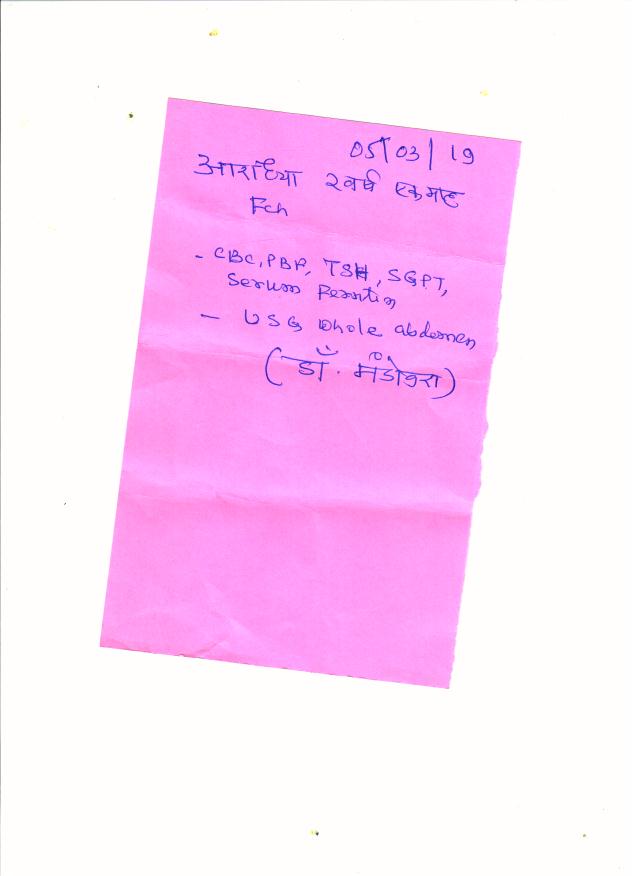 05/03/19
आराध्या २वर्ष एक माह
Fch
- CBC, PBF, TSH, SGPT,
Serum Ferritin
- USG Whole abdomen
(डॉ.